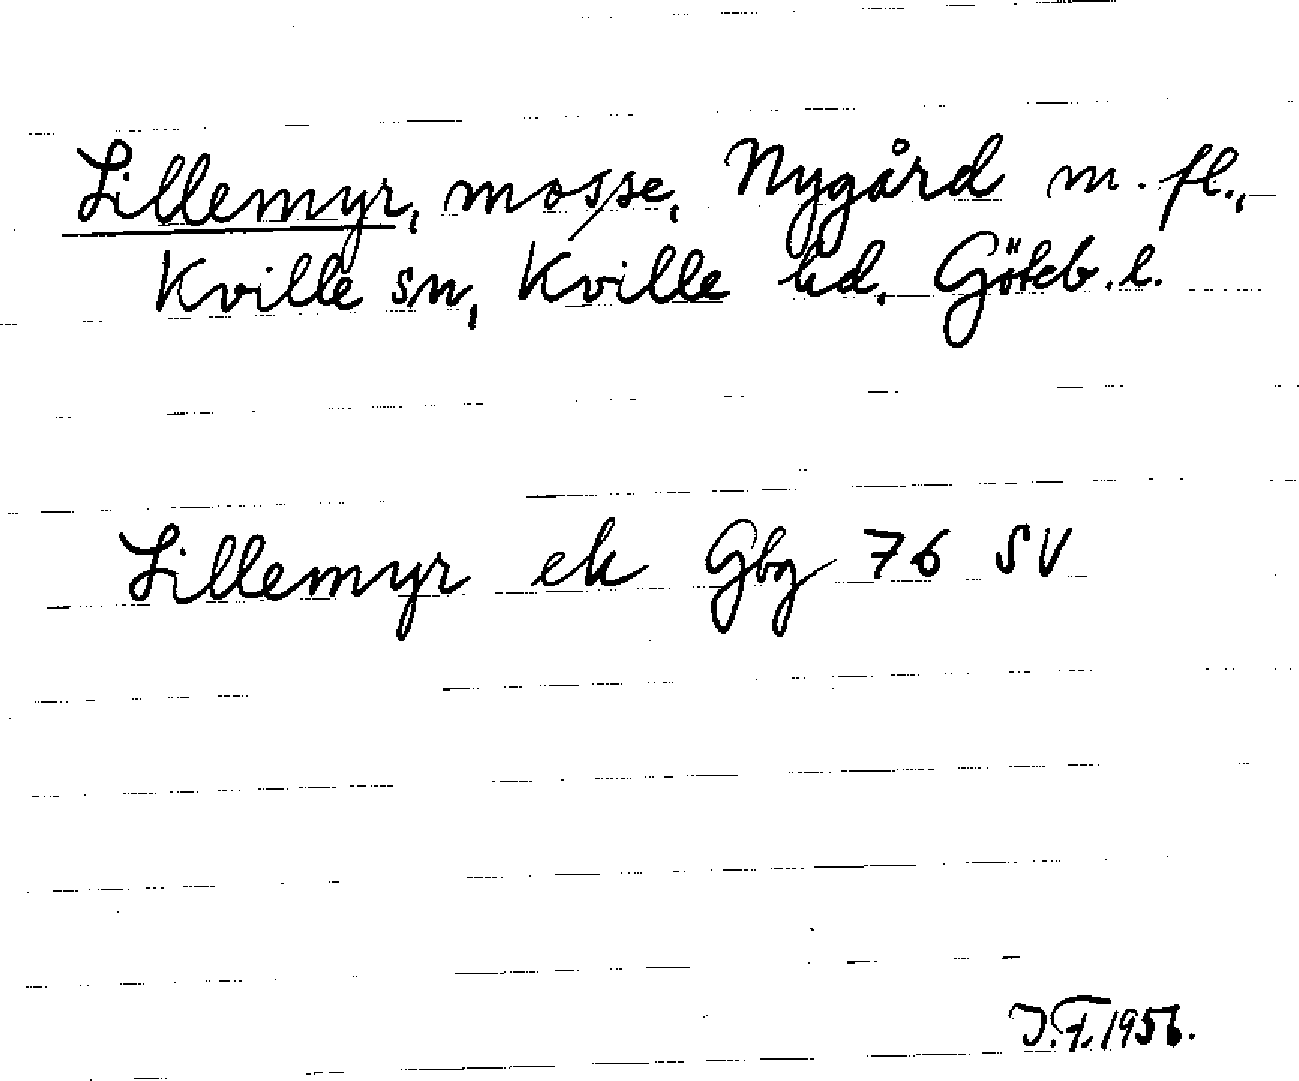 Lillemyr, mosse, Nygård m. fl.,
Kville sn, Kville hd, Göteb. l.
Lillemyr ek Gbg 76 SV
J.F. 1956.